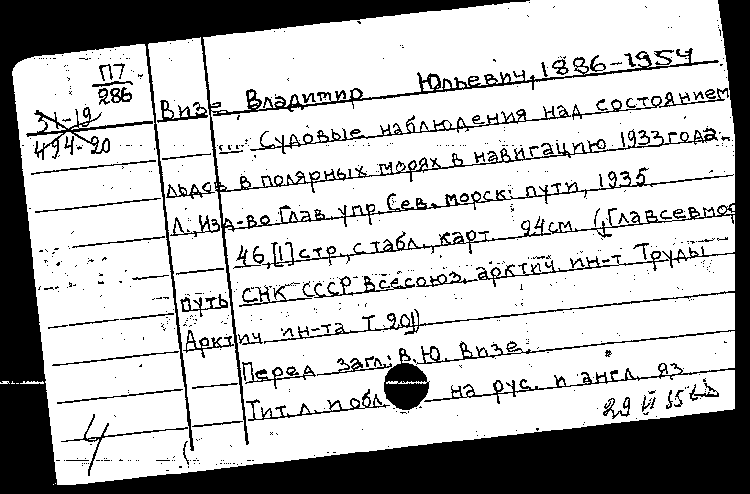 П7
286
31-19
494-20
Визе, Владимир Юльевич, 1886-1954
... Судовые наблюдения над состоянием
льдов в полярных морях в навигацию 1933 года.
Л., Изд-во Глав. упр. Сев. морск. пути, 1935.
46, [1] стр., с табл., карт. 24см. (Главсевмор
путь СНК СССР Всесоюз. арктич. ин-т Труды
Арктич. ин-та. Т 20])
Перед загл.: В.Ю. Визе.
Тит. л. и обл. на рус. и англ. яз
29 VI 55
4